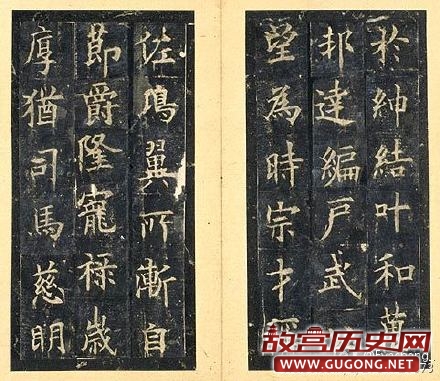 於紳結叶和萬
邦達編戶武
望為時宗才
佐鴻翼所漸自
莭爵隆寵祿歲
厚猶司馬慈明
故宫历史网
WWW.GUGONG.NET